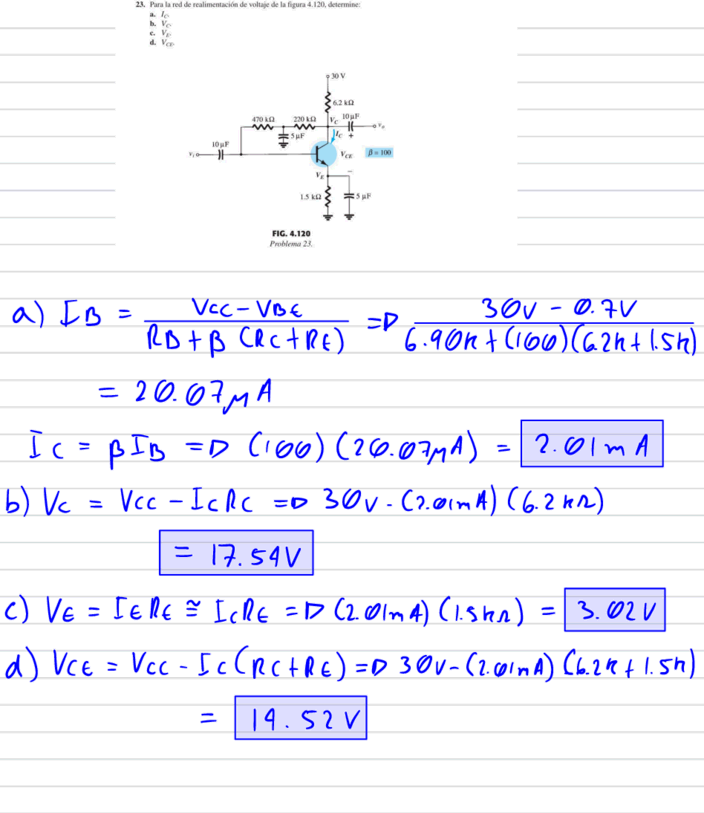 23. Para la red de realimentación de voltaje de la figura 4.120, determine:
a. I_C.
b. V_C.
c. V_E.
d. V_CE.
30 V
6.2 kΩ
470 kΩ 220 kΩ V_C 10 μF
V_o
5 μF I_C +
10 μF
V_i V_CE β = 100
V_E −
1.5 kΩ 5 μF
FIG. 4.120
Problema 23.
a) IB = (VCC - VBE) / (RB + β (RC + RE)) => (30V - 0.7V) / (6.90k + (100)(6.2k + 1.5k))
= 20.07μA
IC = βIB => (100)(20.07μA) = 2.01mA
b) VC = VCC - ICRC => 30V - (2.01mA)(6.2kΩ)
= 17.54V
c) VE = IERE ≅ ICRE => (2.01mA)(1.5kΩ) = 3.02V
d) VCE = VCC - IC(RC + RE) => 30V - (2.01mA)(6.2k + 1.5k)
= 14.52V